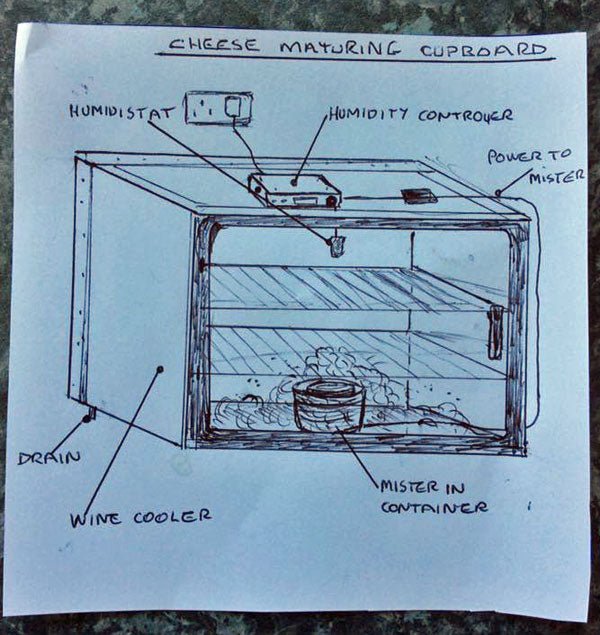 CHEESE MATURING CUPBOARD
HUMIDISTAT
HUMIDITY CONTROLLER
POWER TO
MISTER
DRAIN
WINE COOLER
MISTER IN
CONTAINER